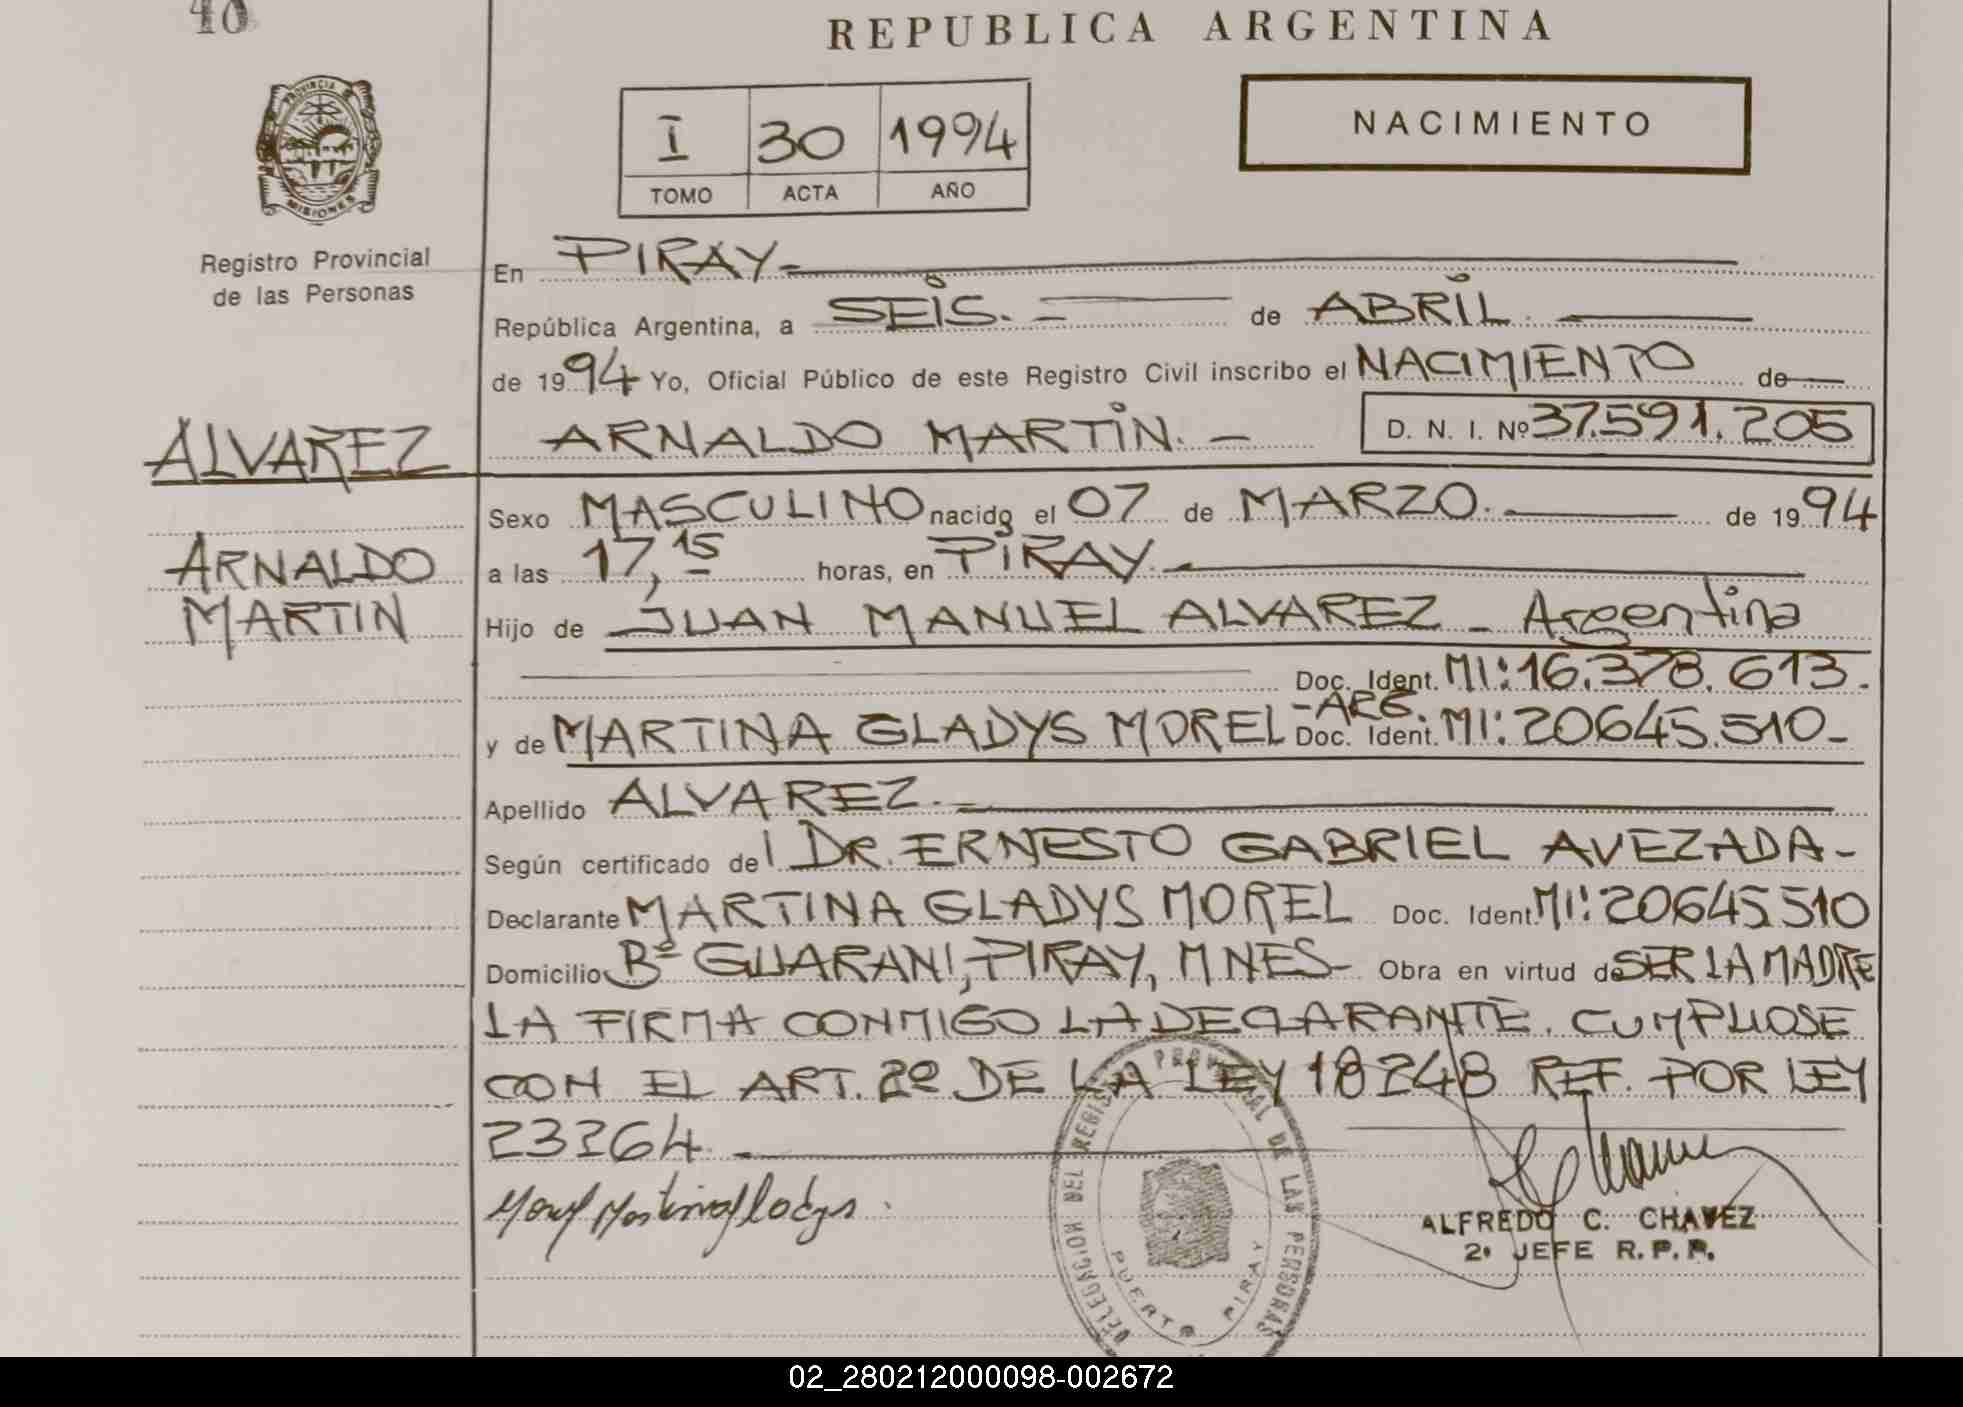 40
REPUBLICA ARGENTINA
PROVINCIA DE
MISIONES
Registro Provincial
de las Personas
I 30 1994
TOMO ACTA AÑO
NACIMIENTO
En PIRAY-
República Argentina, a SEIS. - de ABRIL.
de 1994 Yo, Oficial Público de este Registro Civil inscribo el NACIMIENTO de
ALVAREZ
ARNALDO MARTIN. - D. N. I. Nº 37.591.205
ARNALDO
MARTIN
Sexo MASCULINO nacido el 07 de MARZO. de 1994
a las 17,15 horas, en PIRAY.
Hijo de JUAN MANUEL ALVAREZ - Argentina
Doc. Ident. MI: 16.378.613.
-ARG.
y de MARTINA GLADYS MOREL Doc. Ident. MI: 20645.510-
Apellido ALVAREZ. -
Según certificado del DR. ERNESTO GABRIEL AVEZADA-
Declarante MARTINA GLADYS MOREL Doc. Ident. MI: 20645510
Domicilio Bº GUARANI, PIRAY, MNES- Obra en virtud de SER LA MADRE
LA FIRMA CONMIGO LA DECLARANTE. CUMPLIOSE
CON EL ART. 2º DE LA LEY 18248 REF. POR LEY
23264.
Morel Martina Gladys.
DELEGACION DEL REGISTRO PROVINCIAL DE LAS PERSONAS
PUERTO PIRAY
ALFREDO C. CHAVEZ
2º JEFE R.P.P.
02_280212000098-002672